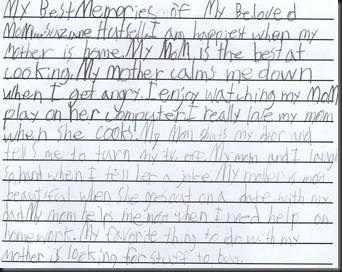 My Best Memories of My Beloved
Mom...Suzanne Hutsell. I am happiest when my
mother is home. My Mom is the best at
cooking. My mother calms me down
when I get angry. I enjoy watching my Mom
play on her computer. I really love my mom
when she cooks. My Mom shuts my door and
tells me to turn my tv off. My mom and I laugh
so hard when I tell her a joke. My mother is most
beautiful when she goes out on a date with my
dad. My mom helps me most when I need help on
homework. My favorite thing to do with my
mother is looking for stuff to buy.